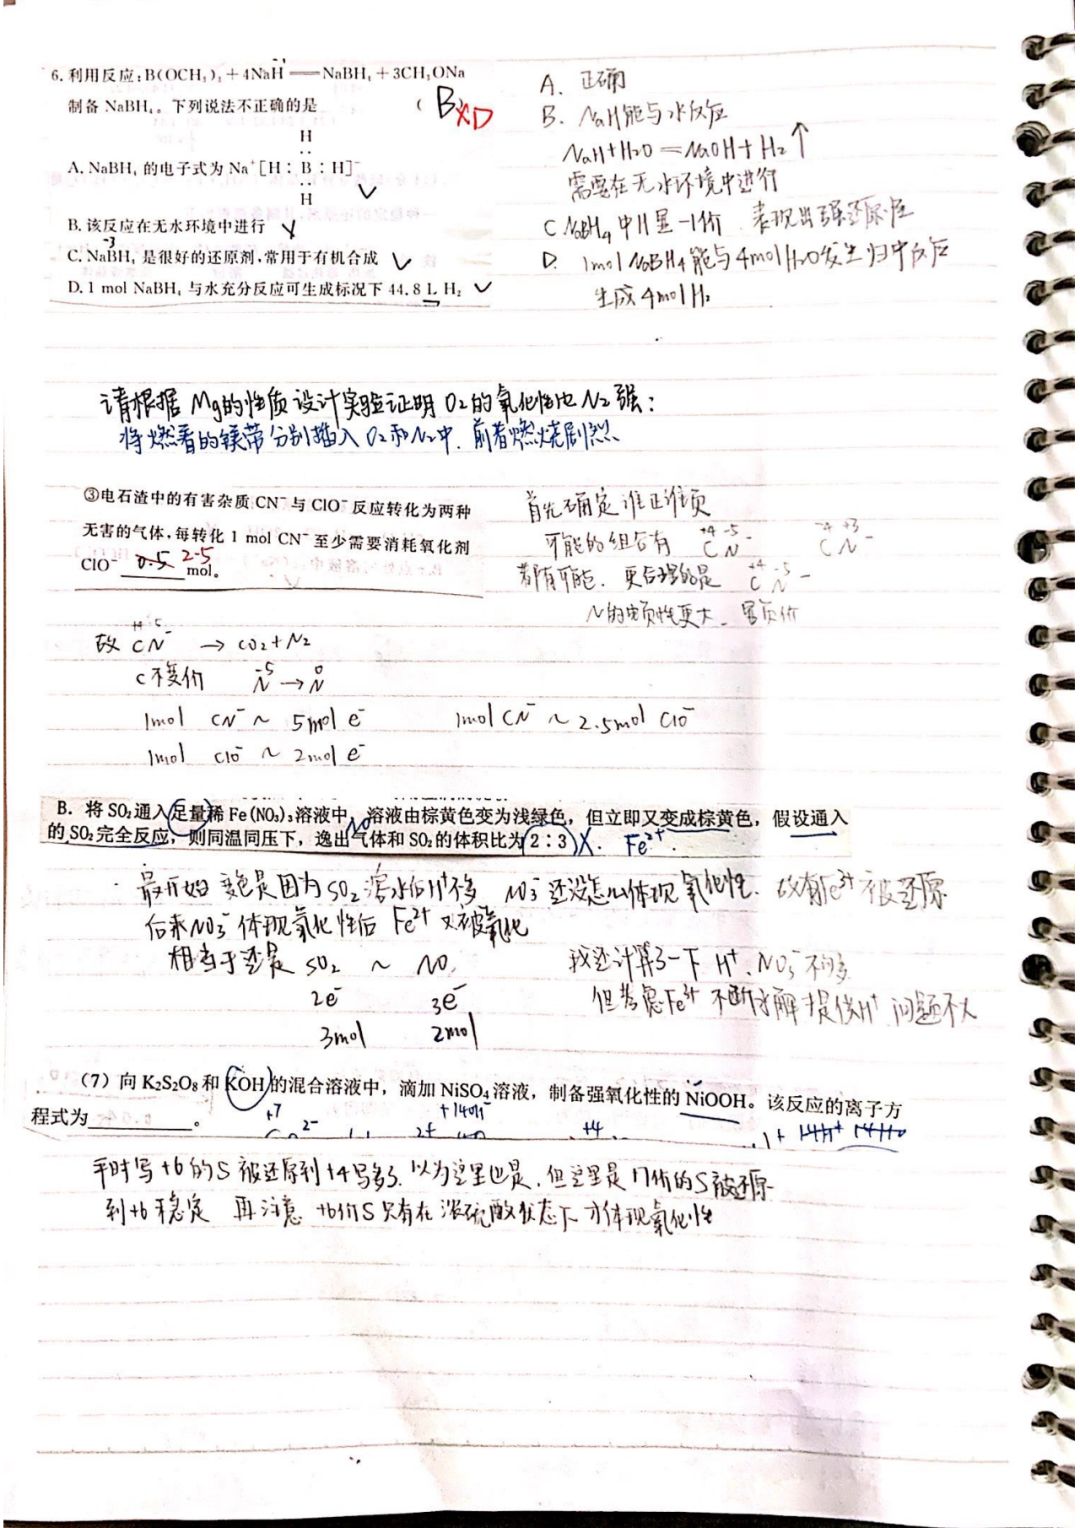 6. 利用反应:B(OCH₃)₃+4NaH══NaBH₄+3CH₃ONa
-1
制备 NaBH₄。下列说法不正确的是 ( B )
×D
H
A. NaBH₄ 的电子式为 Na⁺[H:B:H]⁻
H
B. 该反应在无水环境中进行
-3
C. NaBH₄ 是很好的还原剂,常用于有机合成
D. 1 mol NaBH₄ 与水充分反应可生成标况下 44.8 L H₂
A. 正确
B. NaH能与水反应
NaH+H₂O=NaOH+H₂↑
需要在无水环境中进行
C NaBH₄中H显-1价 表现出强还原性
D. 1mol NaBH₄能与4molH₂O发生归中反应
生成4molH₂
请根据Mg的性质设计实验证明O₂的氧化性比N₂强:
将燃着的镁带分别插入O₂和N₂中,前者燃烧剧烈
③电石渣中的有害杂质 CN⁻ 与 ClO⁻ 反应转化为两种
无害的气体,每转化 1 mol CN⁻ 至少需要消耗氧化剂
ClO⁻ 0.5 2.5 mol。
首先确定谁正谁负
可能的组合有 +4 -5 CN⁻ -4 +3 CN⁻
都有可能. 更合理的是 +4 -5 CN⁻
N的电负性更大. 显负价
故 CN⁻ → CO₂+N₂
C不变价 -5 N → 0 N
1mol CN⁻ ~ 5mol e⁻ 1mol CN⁻ ~ 2.5mol ClO⁻
1mol ClO⁻ ~ 2mol e⁻
B. 将 SO₂通入足量稀 Fe(NO₃)₃溶液中,溶液由棕黄色变为浅绿色,但立即又变成棕黄色,假设通入
NO
的 SO₂完全反应,则同温同压下,逸出气体和 SO₂的体积比为 2:3 ×. Fe²⁺.
最开始变色是因为SO₂溶水后H⁺不多 NO₃⁻还没怎么体现氧化性. 故有Fe³⁺被还原
后来NO₃⁻体现氧化性后 Fe²⁺又被氧化
相当于还是 SO₂ ~ NO.
2e⁻ 3e⁻
3mol 2mol
我还计算了一下 H⁺、NO₃⁻不够
但考虑Fe³⁺不断水解提供H⁺ 问题不大
(7)向 K₂S₂O₈ 和 KOH 的混合溶液中,滴加 NiSO₄ 溶液,制备强氧化性的 NiOOH。该反应的离子方
程式为________。
+7 +14OH⁻ +4
平时写+6的S被还原到+4写多了. 以为这里也是. 但这里是+7价的S被还原
到+6稳定 再注意 +6价S只有在浓硫酸状态下才体现氧化性